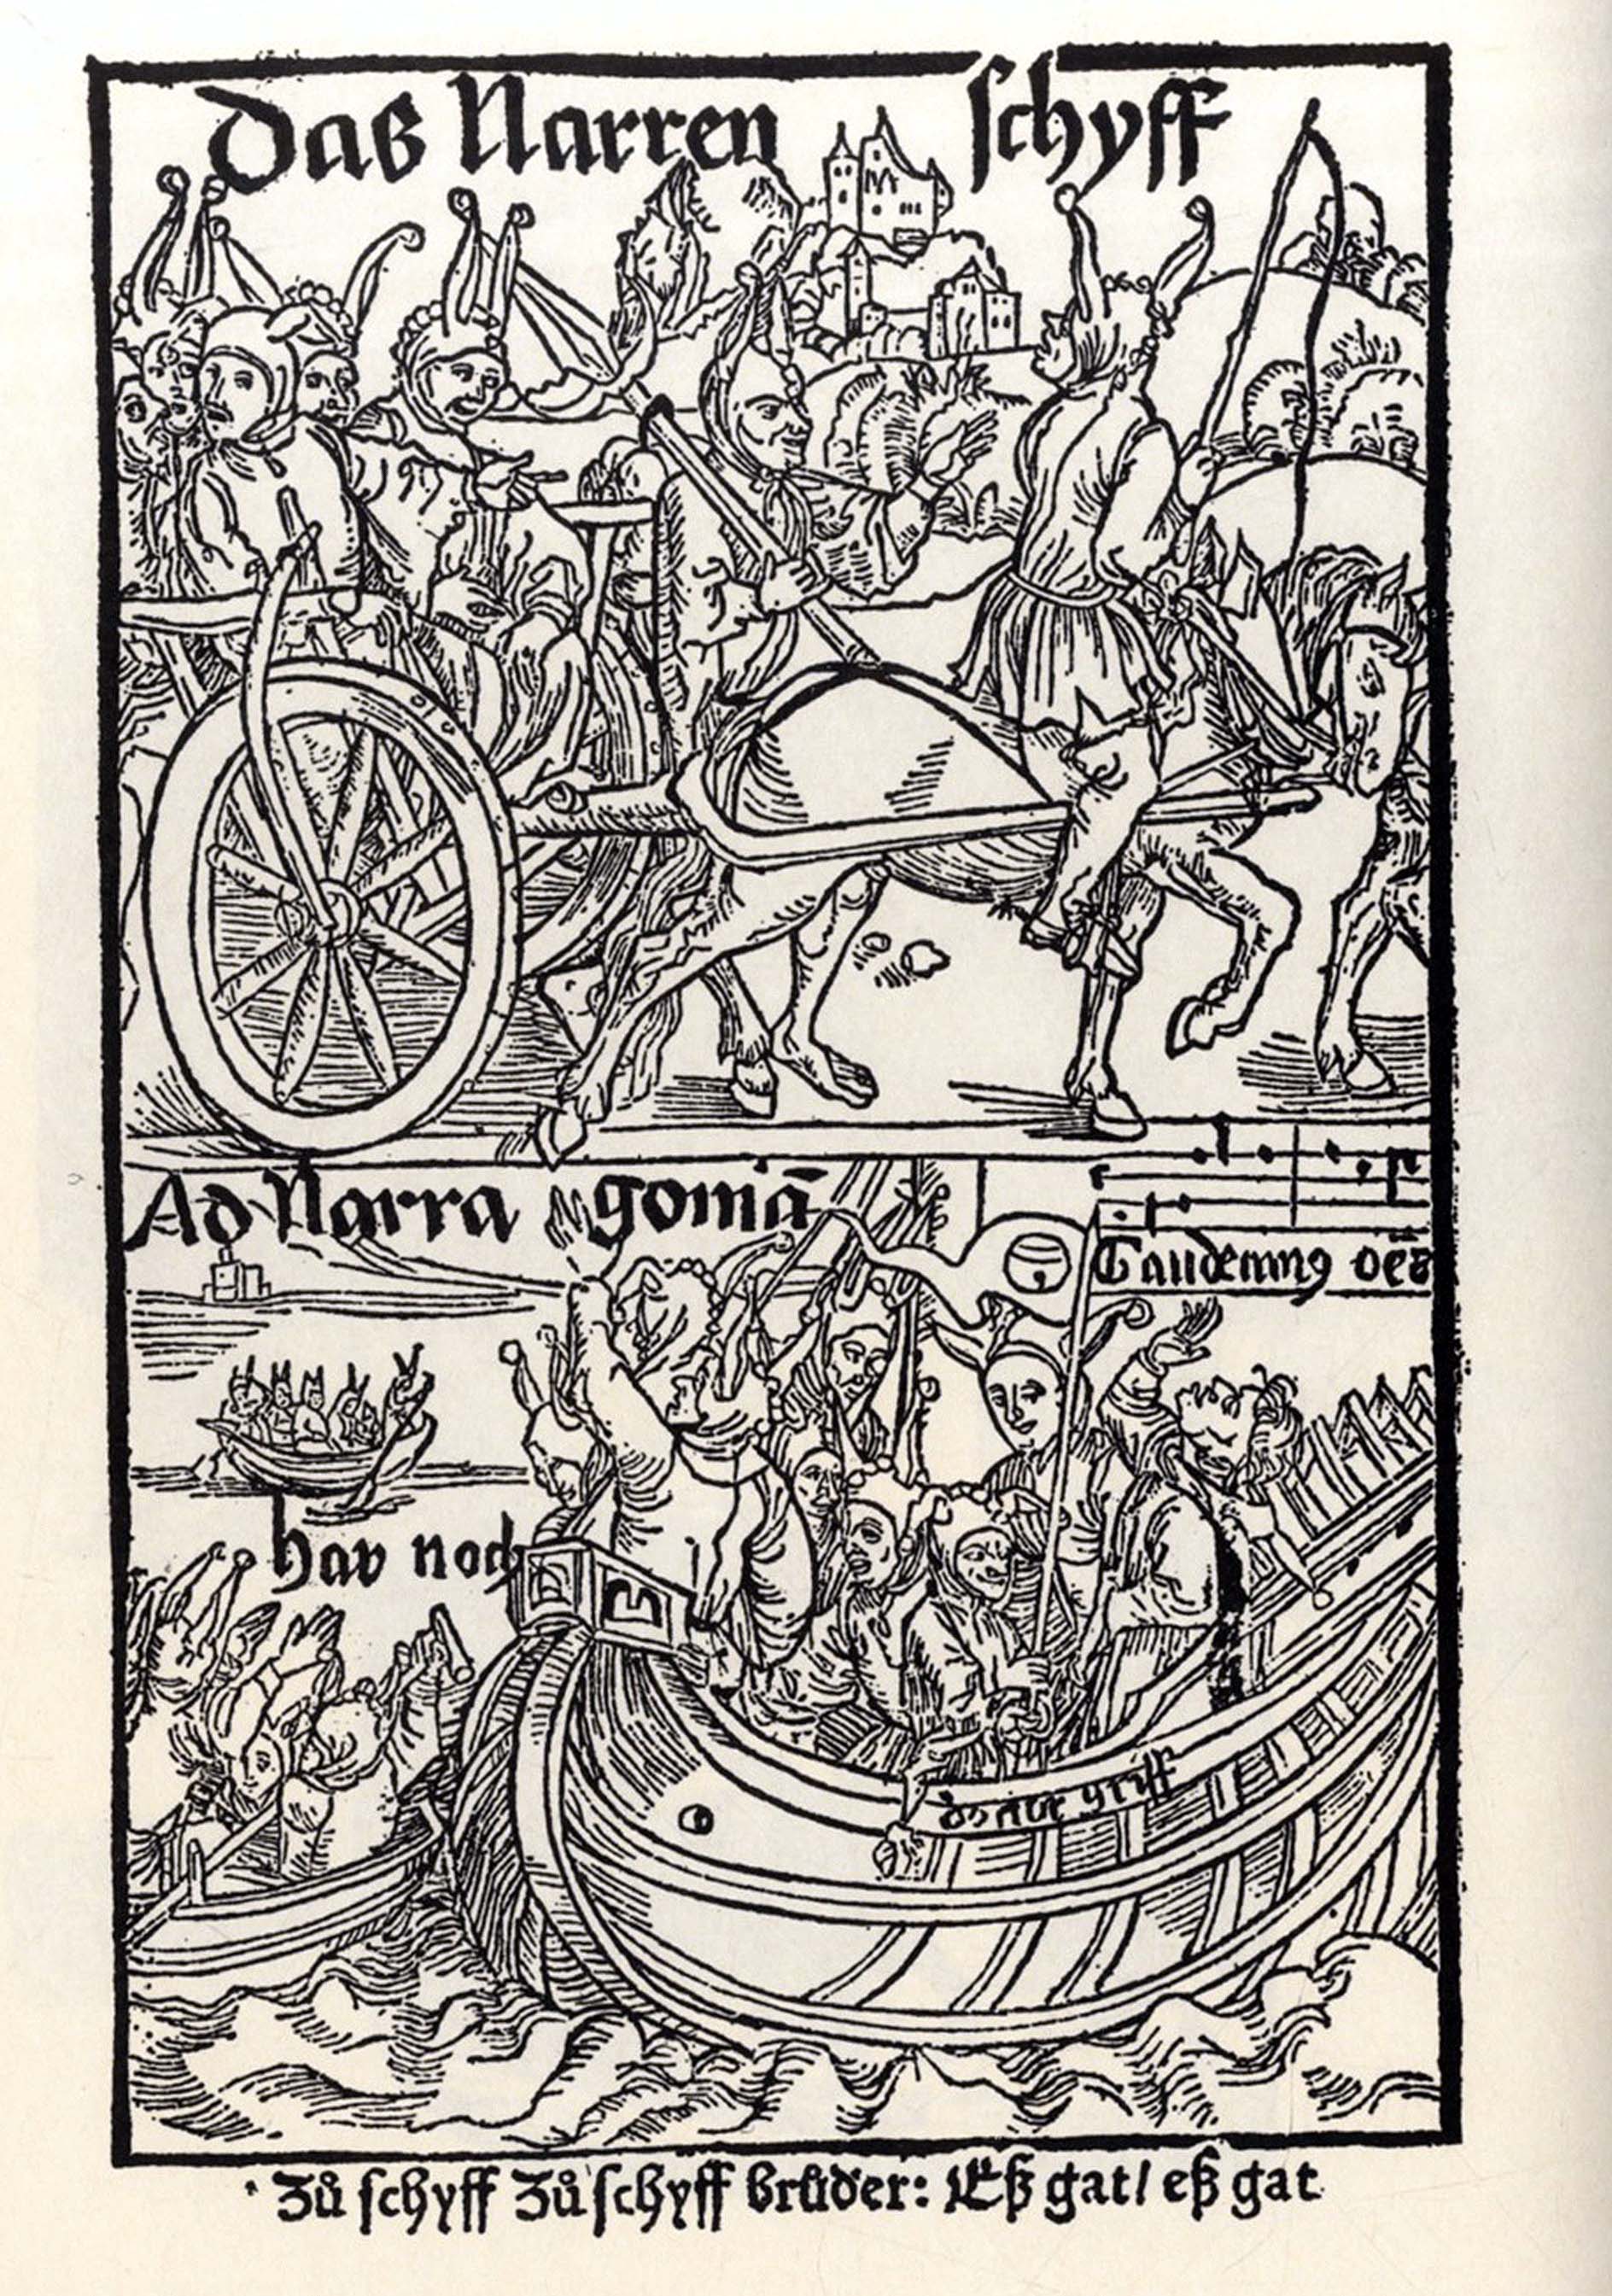 Das Narren schyff
Ad Narra goniā
Gaudeamus oēs
har noch
doctor griff
Zů schyff Zů schyff brůder: Eß gat/ eß gat